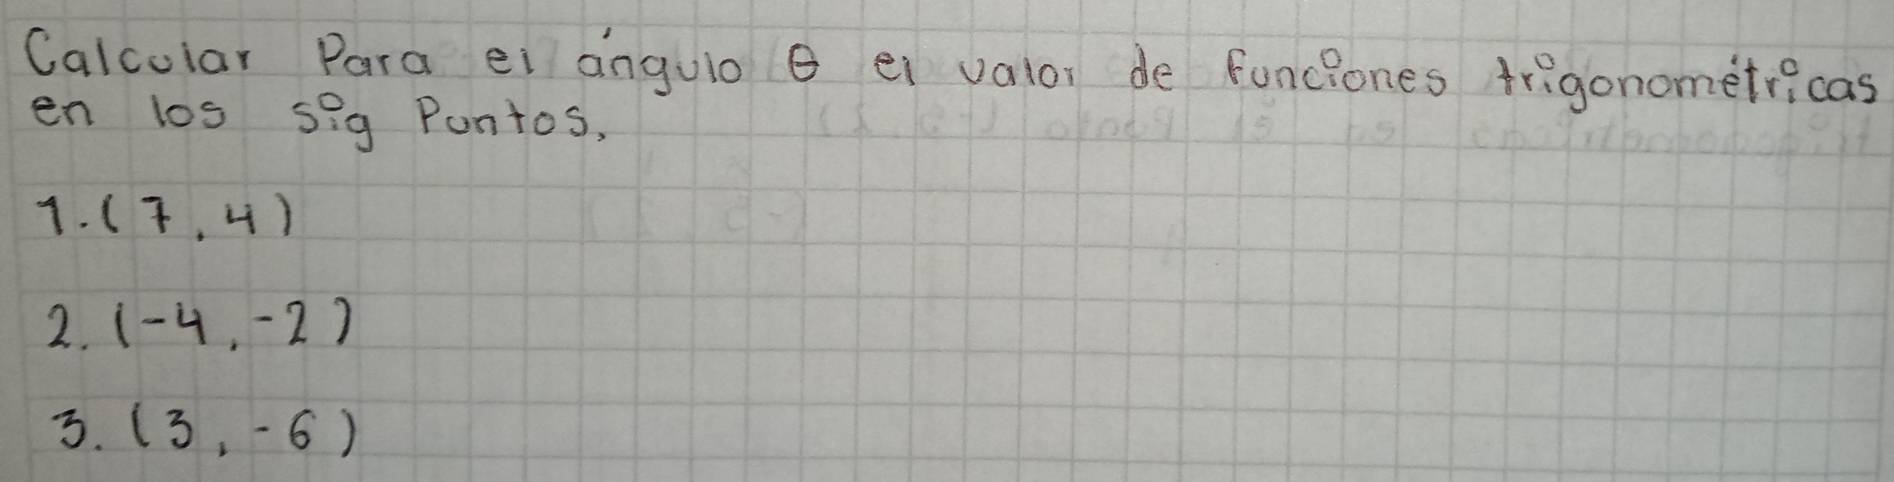 Calcular Para el ángulo θ el valor de funciones trigonométricas
en los sig Puntos,
1. (7, 4)
2. (-4, -2)
3. (3, -6)